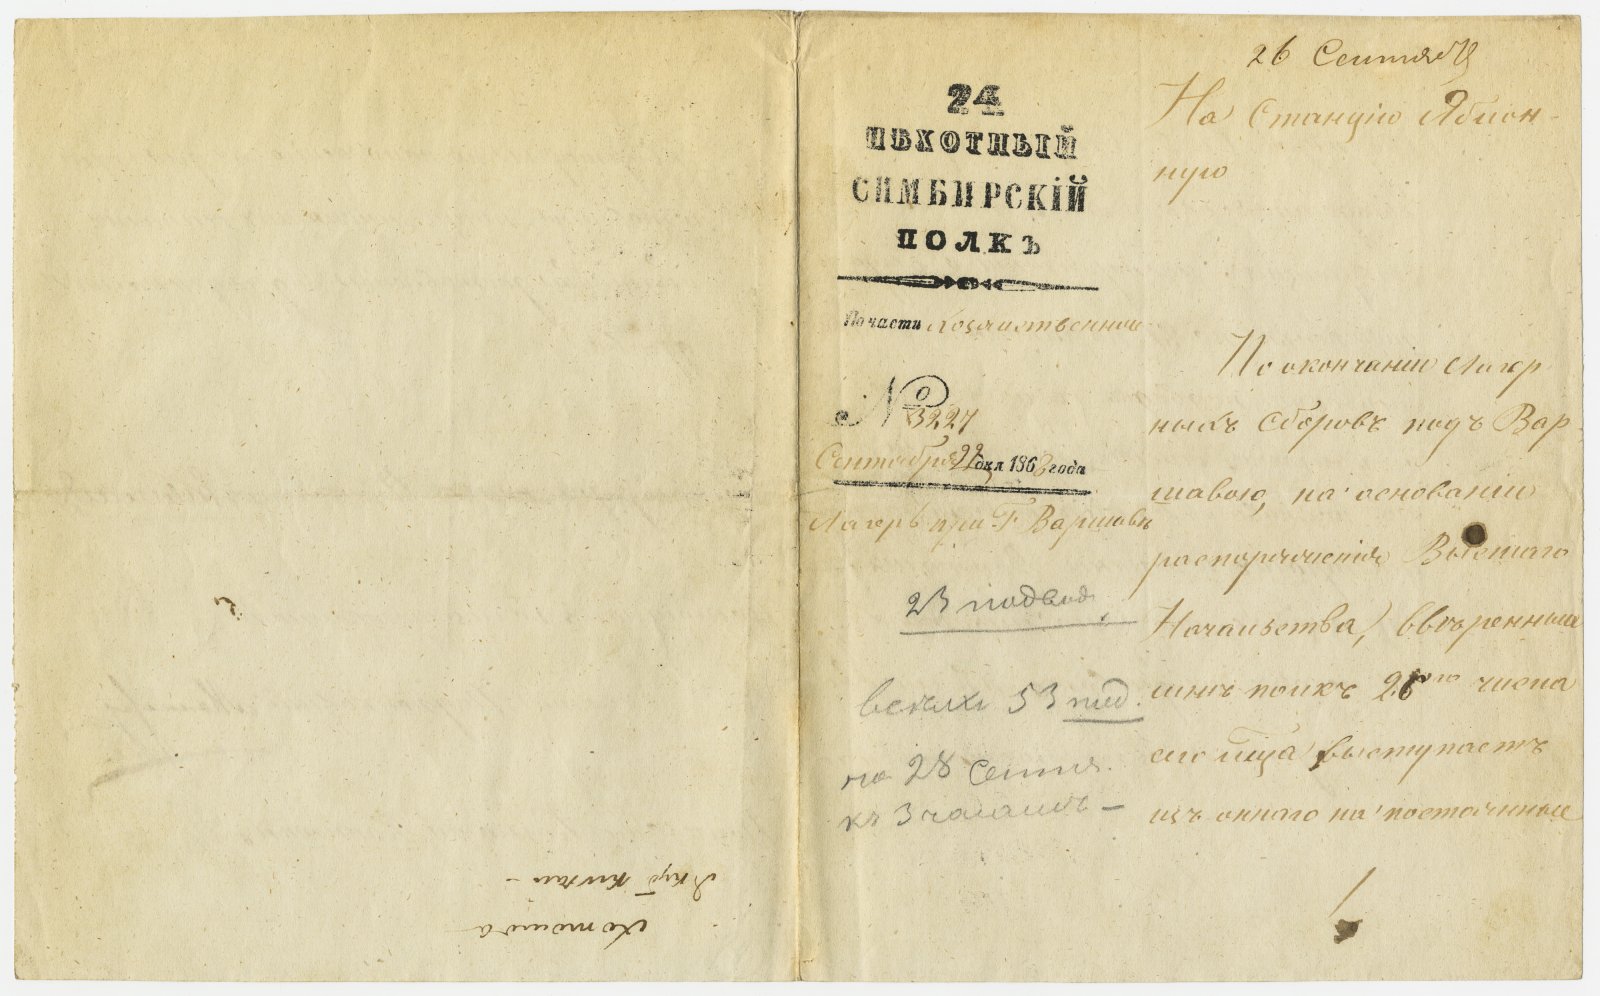 24
ПѢХОТНЫЙ
СИМБИРСКІЙ
ПОЛКЪ
По части Хозяйственной
№ 3227
Сентября 22 дня 1868 года
Лагерь при Г. Варшавѣ
23 подвод
всѣхъ 53 под.
на 28 Сентя.
къ 3 часамъ —
26 Сентяб
На Станцію Яблон-
ную
По окончаніи лагер
ныхъ сборовъ подъ Вар-
шавою, на основаніи
распоряженія Высшаго
Начальства, ввѣренный
мнѣ полкъ 26го числа
сего м‍ца выступаетъ
изъ оннаго на постоянныя
Якуб